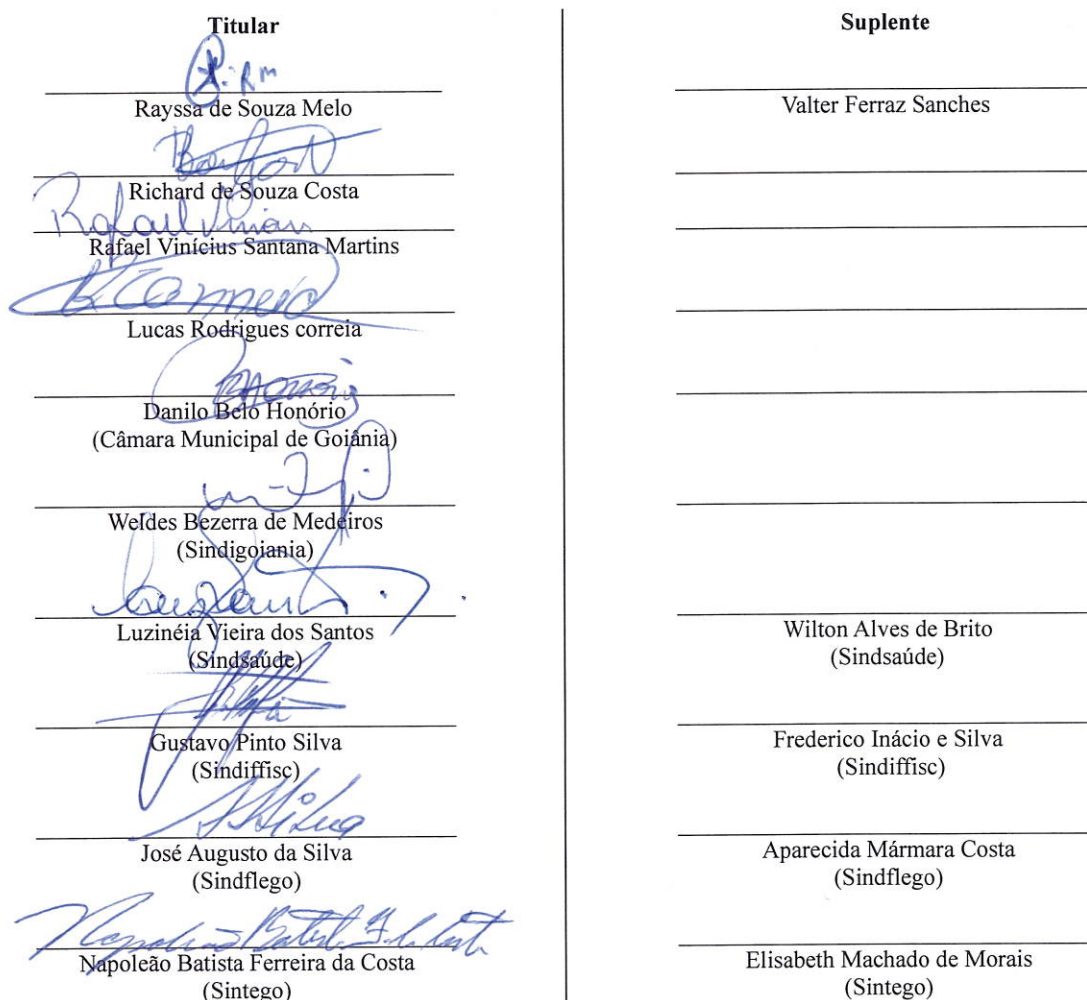 Titular
Rayssa de Souza Melo
Richard de Souza Costa
Rafael Vinícius
Rafael Vinícius Santana Martins
Lucas Rodrigues correia
Danilo Belo Honório
(Câmara Municipal de Goiânia)
Weldes Bezerra de Medeiros
(Sindigoiania)
Luzinéia Vieira dos Santos
(Sindsaúde)
Gustavo Pinto Silva
(Sindiffisc)
José Augusto da Silva
(Sindflego)
Napoleão Batista Ferreira da Costa
(Sintego)
Suplente
Valter Ferraz Sanches
Wilton Alves de Brito
(Sindsaúde)
Frederico Inácio e Silva
(Sindiffisc)
Aparecida Mármara Costa
(Sindflego)
Elisabeth Machado de Morais
(Sintego)